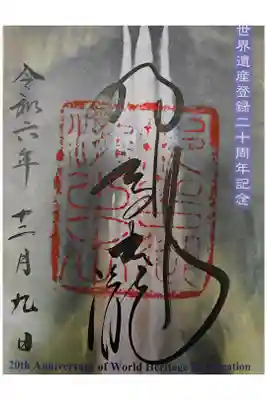 世界遺産登録二十周年記念
那智大瀧
令和六年 十二月九日
20th Anniversary of World Heritage